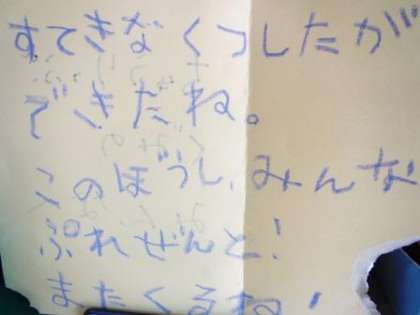 すてきなくつしたが
できたね。
このぼうし、みんな
ぷれぜんと!
またくるね!